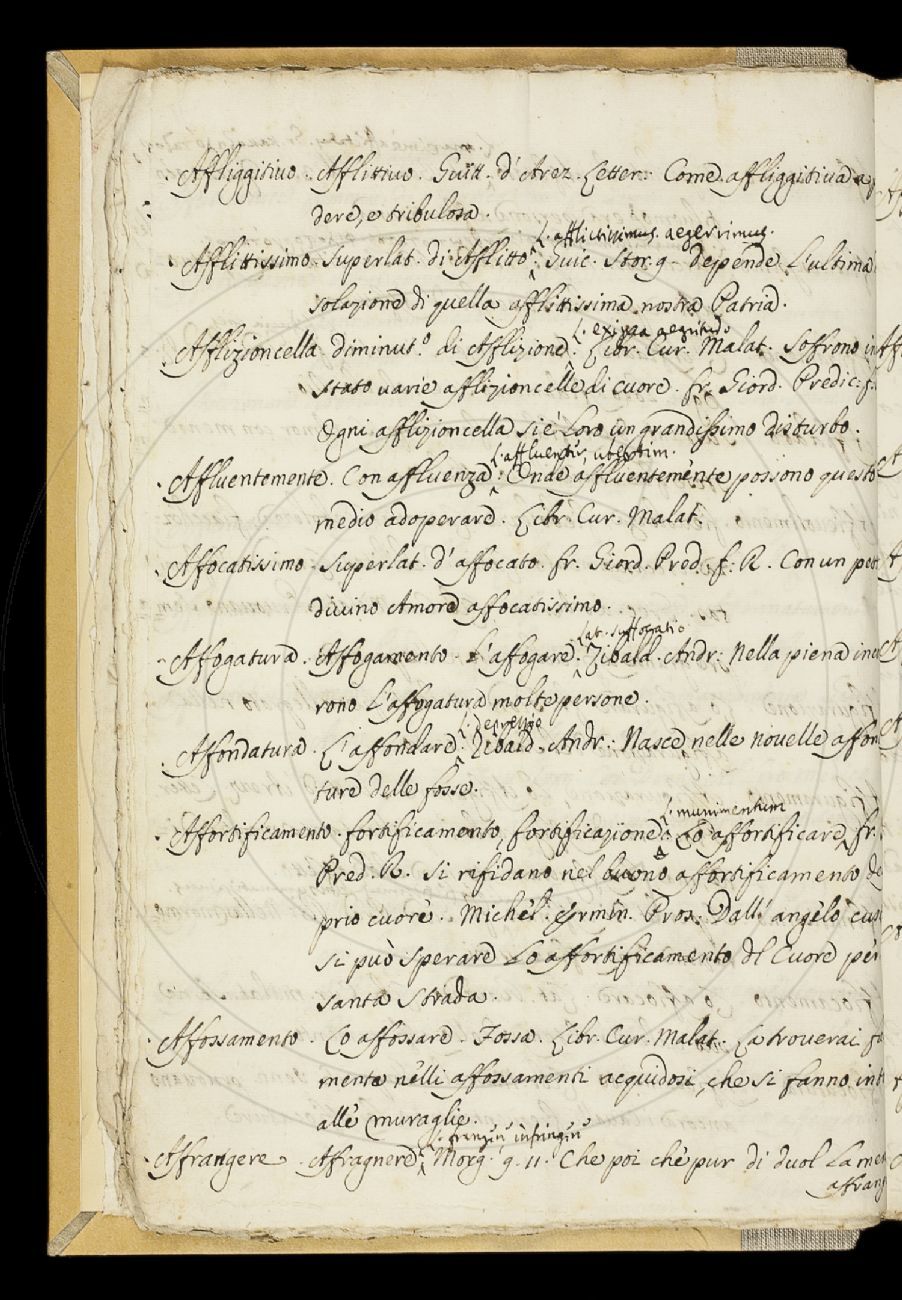 Affliggitivo. Afflittivo. Guitt. d'Arez. Letter: Come affliggitiva a
dere, e tribulosa.
L. afflictissimus. aegerrimus.
Afflittissimo. Superlat. di Afflitto. Guic. Stor. 9. depende L'ultima
solazione di quella afflittissima nostra Patria.
L. exigua aegritudo
Afflizioncella diminut.o di Afflizione. Libr. Cur. Malat. Sofrono in
stato varie afflizioncelle di cuore. fr. Giord. Predic: f.
Ogni afflizioncella si è Loro un grandissimo disturbo.
L. affluenter, ubertim.
Affluentemente. Con affluenza. Onde affluentemente possono questo
medio adoperare. Libr. Cur. Malat.
Affocatissimo. Superlat. d'affocato. fr. Giord. Pred: f: R. Con un pet
divino Amore affocatissimo.
Lat. suffocatio
Affogatura. Affogamento. L'affogare. Zibald. Andr: Nella piena inc
rono L'affogatura molte persone.
L. depressio
Affondatura. L'affondare. Zibald. Andr: Nasce nelle novelle affon
ture delle fosse.
L. munimentum
Affortificamento. fortificamento, fortificazione. Lo affortificare, fr.
Pred. R. Si rifidano nel buono affortificamento de
prio cuore. Michel. Ermin. Pros: Dall'angelo cus
si può sperare Lo affortificamento del Cuore per
santa strada.
Affossamento. Lo affossare. Fossa. Libr. Cur. Malat. La troverai fa
mente nelli affossamenti acquidosi, che si fanno int
alle muraglie.
L. frangere infringere
Affrangere. Affragnere. Morg. 9. 11. Che poi chè pur di duol La me
affrang